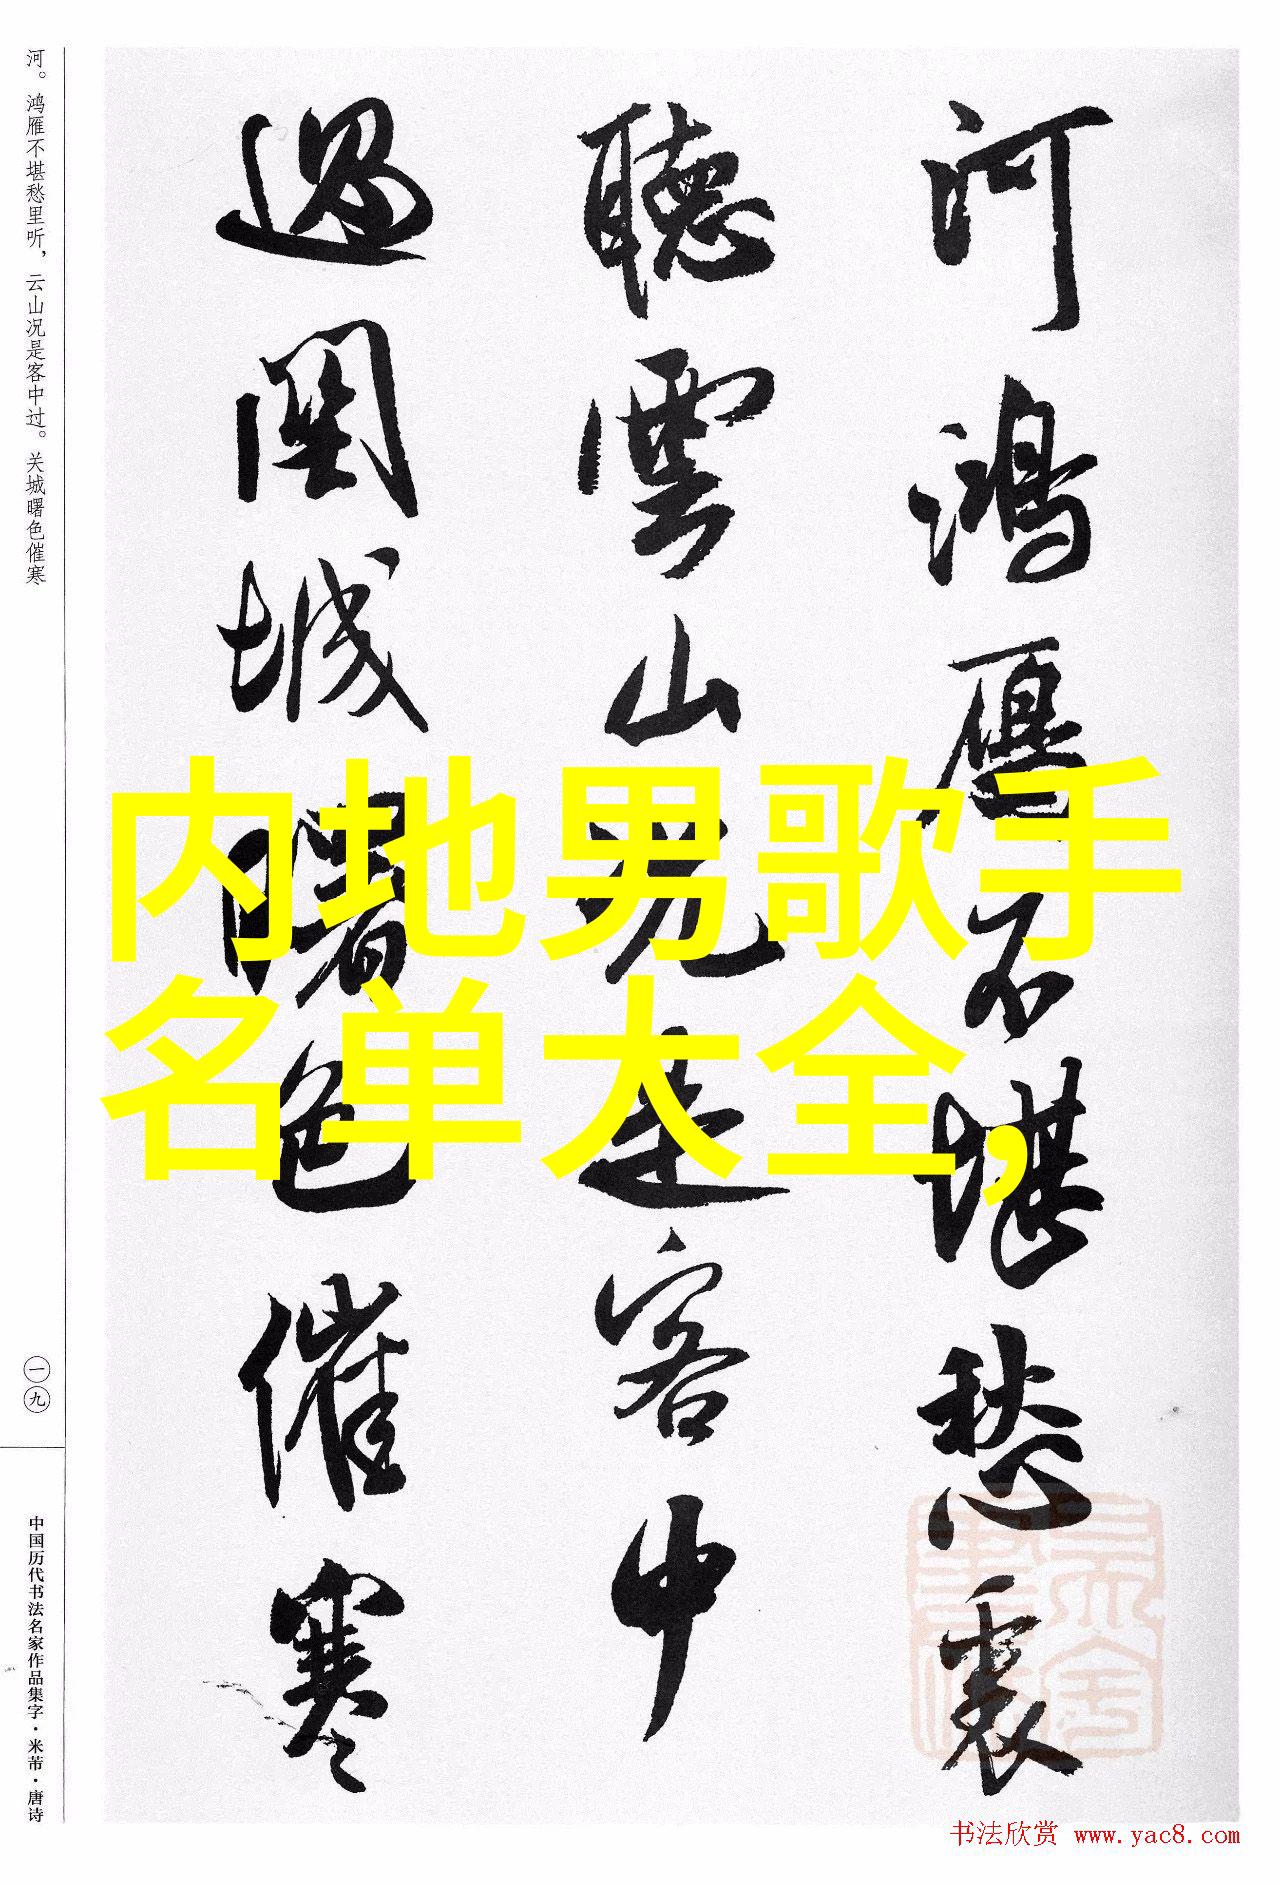 河鸿雁不堪愁裏
聽雲山况是客中
過関城曙色催寒
河。鸿雁不堪愁里听，云山况是客中过。关城曙色催寒
一九
中国历代书法名家作品集字·米芾·唐诗
内地男歌手
名单大全，
书法欣赏 www.yac8.com